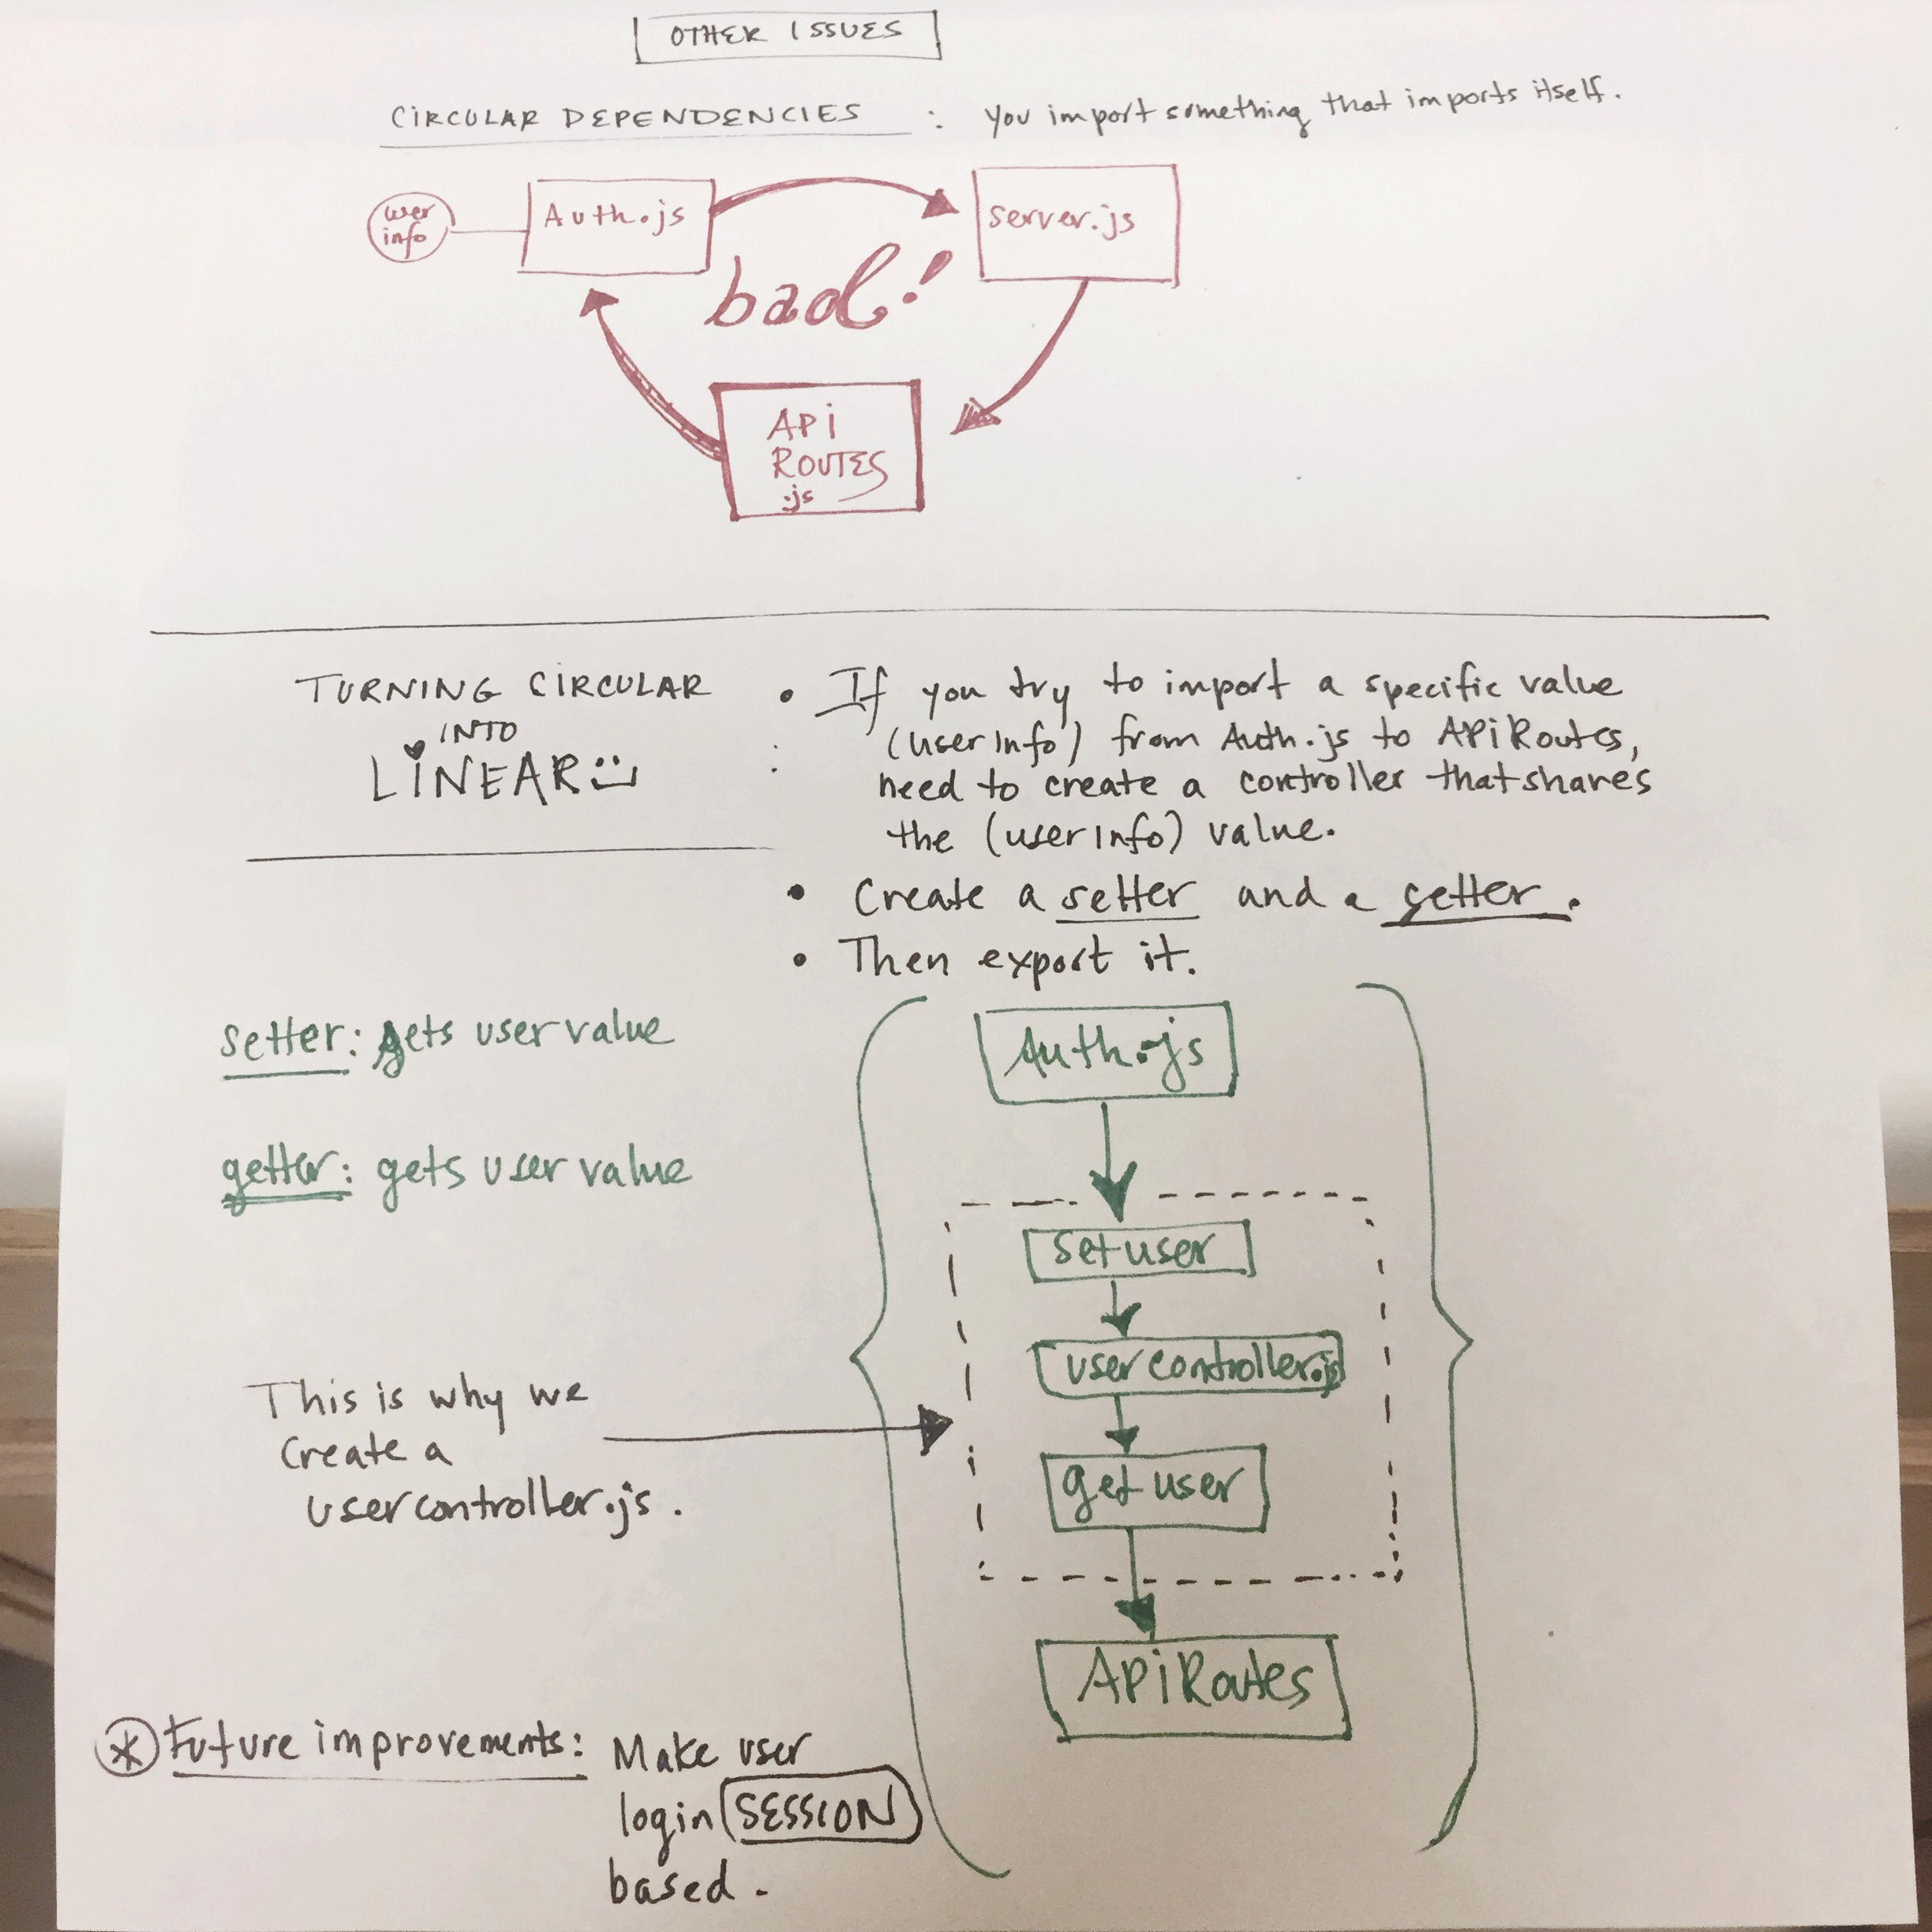 OTHER ISSUES
CIRCULAR DEPENDENCIES : You import something that imports itself.
user
info
Auth.js
server.js
bad!
API
ROUTES
.js
TURNING CIRCULAR
INTO
LINEAR
:
• If you try to import a specific value
(userinfo) from Auth.js to APiRoutes,
need to create a controller that shares
the (userinfo) value.
• Create a setter and a getter.
• Then export it.
setter: gets user value
getter: gets user value
Auth.js
setuser
usercontroller.js
getuser
APiRoutes
This is why we
create a
usercontroller.js.
* Future improvements: Make user
login SESSION
based.